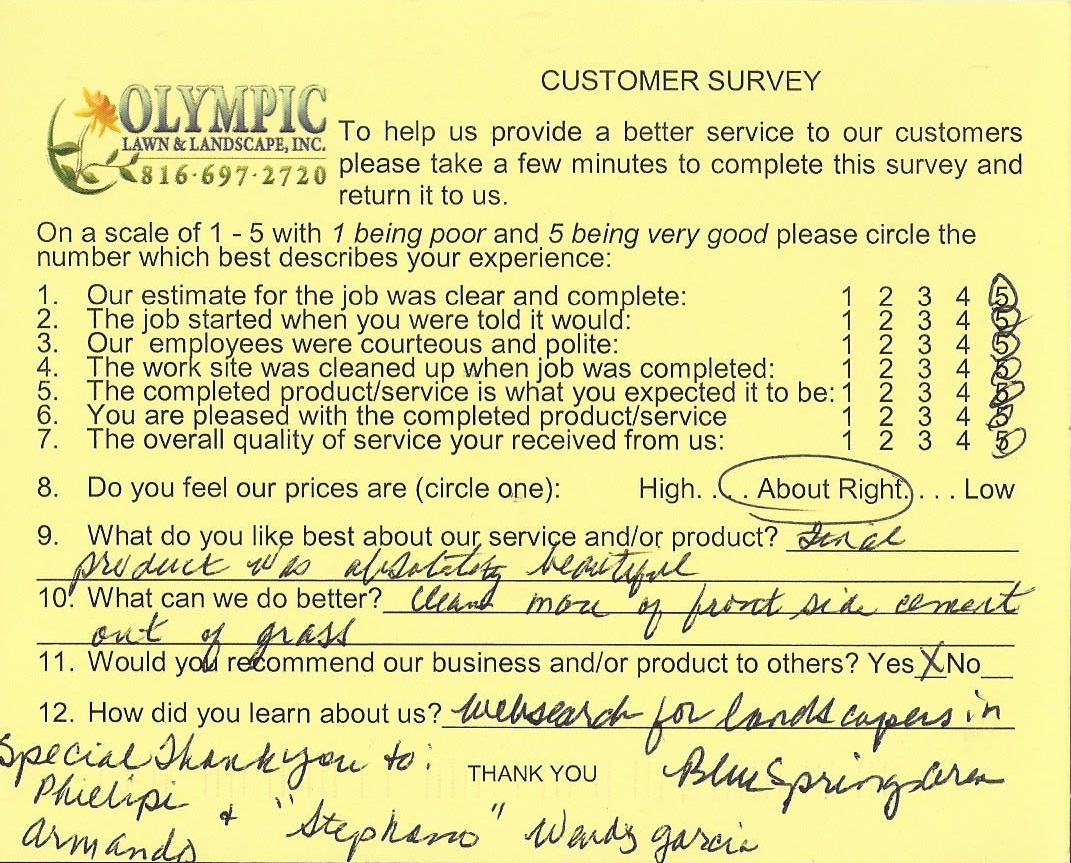 CUSTOMER SURVEY
OLYMPIC
LAWN & LANDSCAPE, INC.
816·697·2720
To help us provide a better service to our customers
please take a few minutes to complete this survey and
return it to us.
On a scale of 1 - 5 with 1 being poor and 5 being very good please circle the
number which best describes your experience:
1. Our estimate for the job was clear and complete: 1 2 3 4 5
2. The job started when you were told it would: 1 2 3 4 5
3. Our employees were courteous and polite: 1 2 3 4 5
4. The work site was cleaned up when job was completed: 1 2 3 4 5
5. The completed product/service is what you expected it to be: 1 2 3 4 5
6. You are pleased with the completed product/service 1 2 3 4 5
7. The overall quality of service your received from us: 1 2 3 4 5
8. Do you feel our prices are (circle one): High. . . . About Right. . . . Low
9. What do you like best about our service and/or product? Final
product was absolutely beautiful
10. What can we do better? Clean more of front side cement
out of grass
11. Would you recommend our business and/or product to others? Yes X No__
12. How did you learn about us? websearch for landscapers in
Blue Springs area
Special Thank you to:
THANK YOU
Phillipi
& "Stephano" Wendy Garcia
Armando